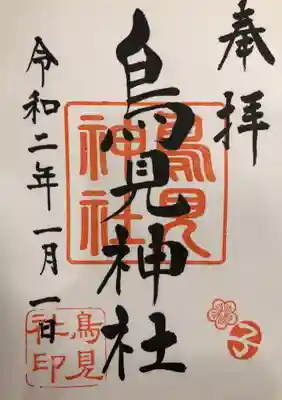 奉拝
鳥見神社
令和二年一月一日
鳥見
神社
鳥見
社印
子